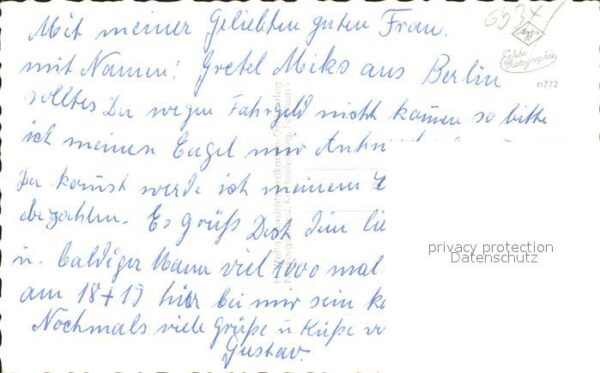 Mit meiner Geliebten guten Frau.
mit Namen: Gretel Miks aus Berlin
solltes Du wegen Fahrgeld nicht kommen so bitte
ich meinen Engel nur
Du komst werde ich meinem
bezahlen. Es grüß Dich dein
u. baldiger Mann viel 1000 mal
am 18+19 hier bei mir sein
Nochmals viele Grüße u Küße
Gustav.
6537
Echte
Photographie
n773
privacy protection
Datenschutz